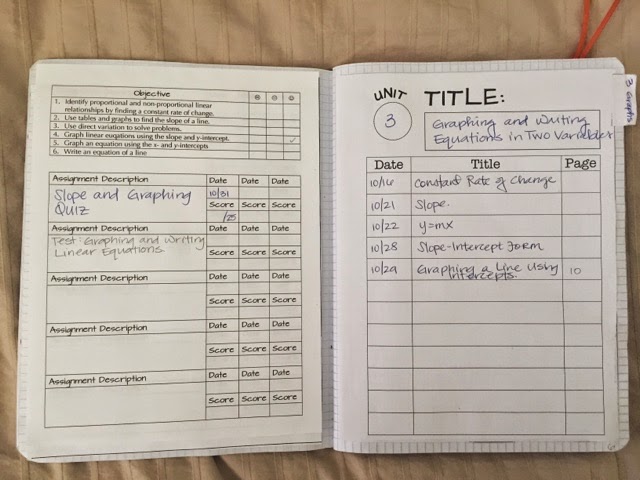 Objective
1. Identify proportional and non-proportional linear
relationships by finding a constant rate of change.
2. Use tables and graphs to find the slope of a line.
3. Use direct variation to solve problems.
4. Graph linear euqations using the slope and y-intercept.
5. Graph an equation using the x- and y-intercepts
6. Write an equation of a line
Assignment Description Date Date Date
Slope and Graphing 10/31
QUIZ Score Score Score
/25
Assignment Description Date Date Date
Test: Graphing and Writing
Linear Equations Score Score Score
Assignment Description Date Date Date
Score Score Score
Assignment Description Date Date Date
Score Score Score
Assignment Description Date Date Date
Score Score Score
UNIT TITLE:
3
Graphing and Writing
Equations in Two Variables
Date Title Page
10/16 Constant Rate of Change
10/21 Slope.
10/22 y=mx
10/28 Slope-Intercept Form
10/29 Graphing a Line Using 10
Intercepts.